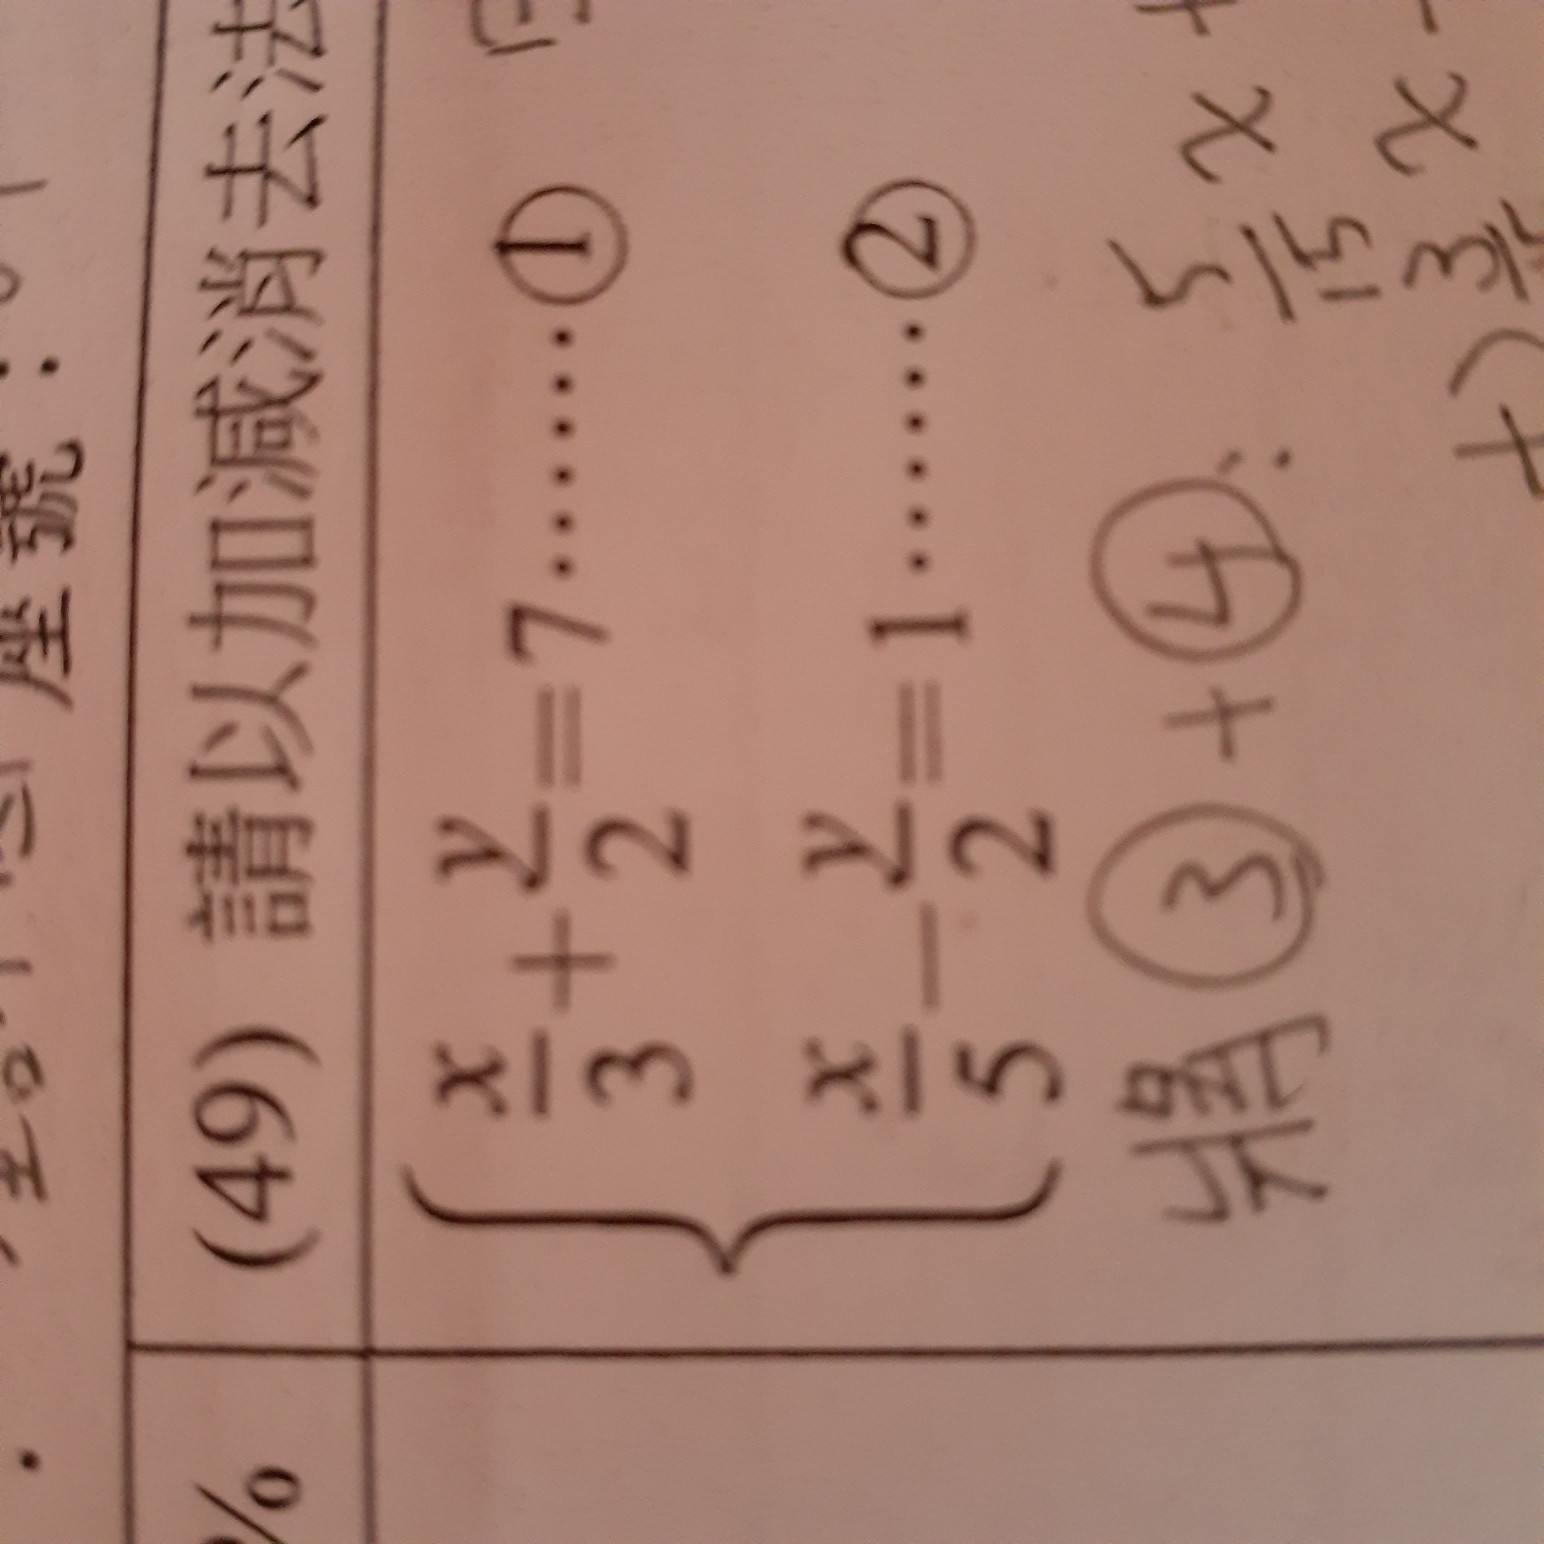 座號：
(49) 請以加減消去法
x/3 + y/2 = 7 ⋯⋯ ①
x/5 − y/2 = 1 ⋯⋯ ②
將 ③ + ④：5/15 x +
+) 3/15 x −
%